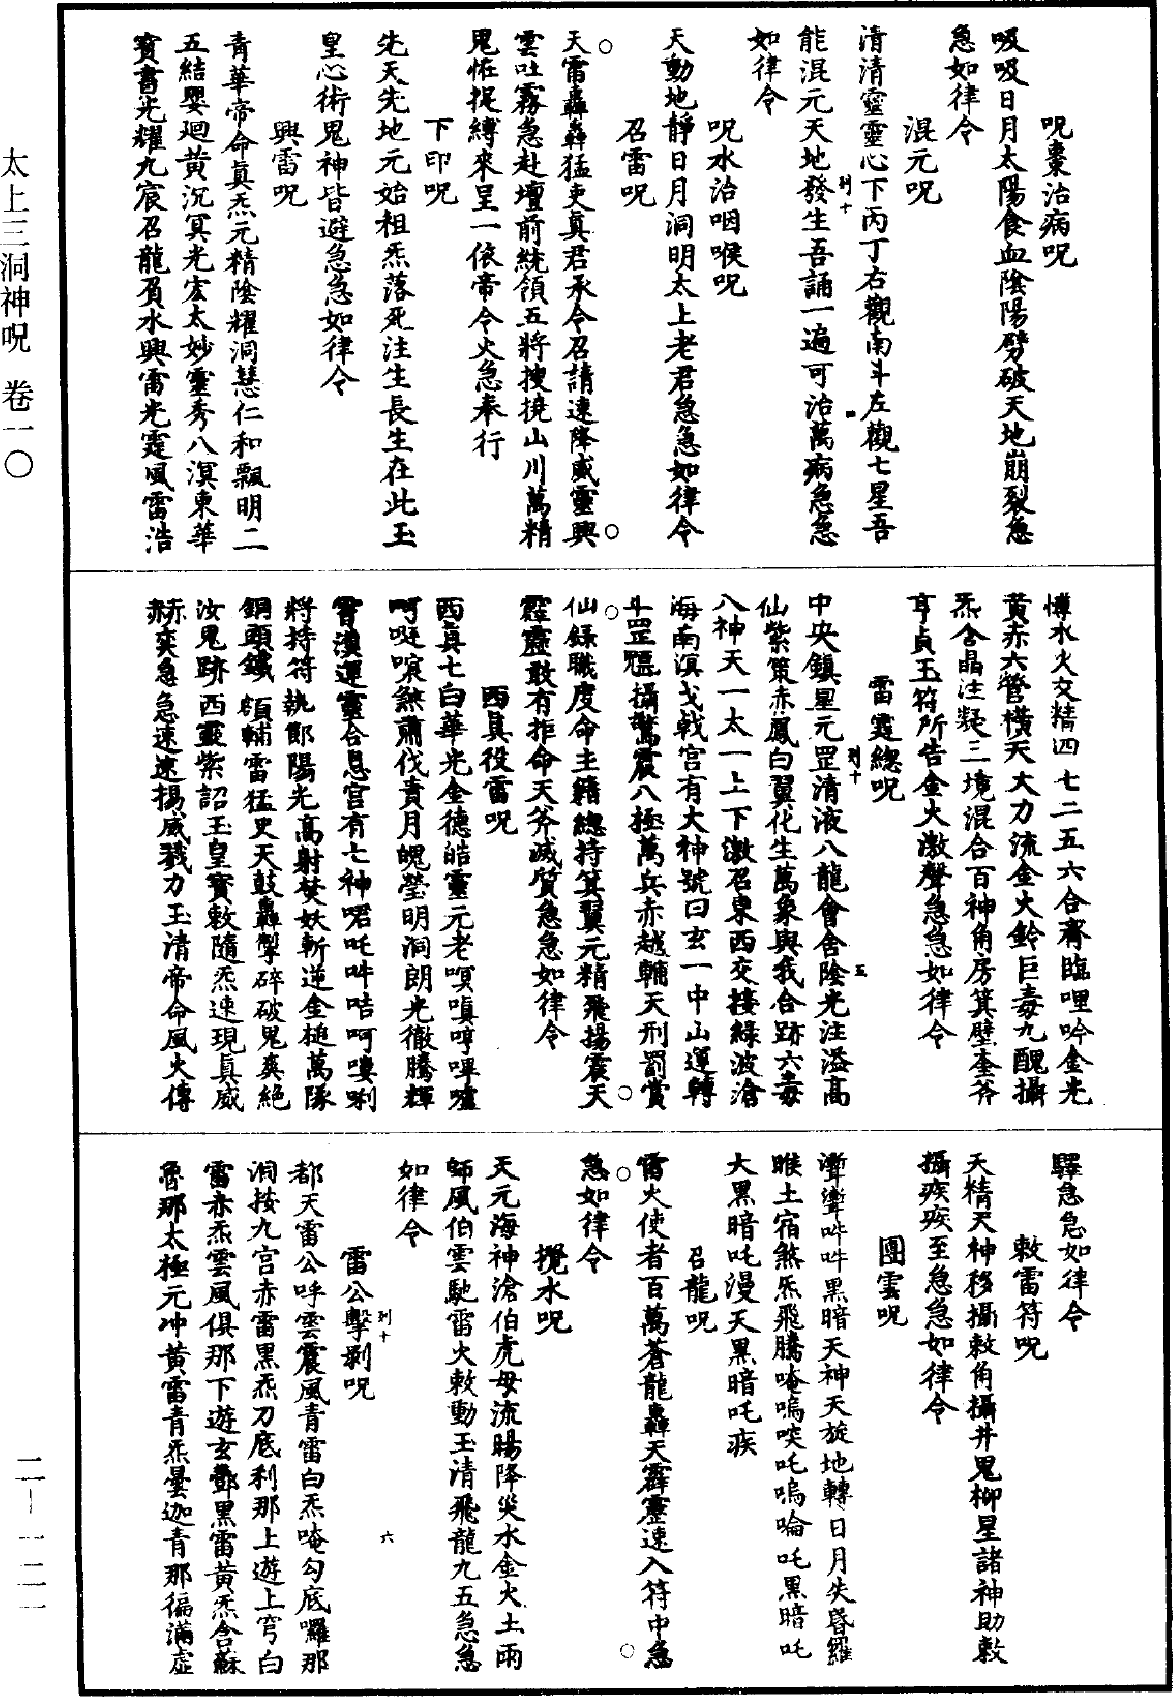 太上三洞神呪 卷一〇
呪棗治病呪
吸吸日月太陽食血陰陽劈破天地崩裂急
急如律令
混元呪
清清靈靈心下丙丁右觀南斗左觀七星吾
列十
能混元天地發生吾誦一遍可治萬病急急
四
如律令
呪水治咽喉呪
天動地靜日月洞明太上老君急急如律令
召雷呪
天雷轟轟猛吏真君承令召請速降威靈興
雲吐霧急赴壇前統領五將搜撓山川萬精
鬼怪捉縛來呈一依帝令火急奉行
下印呪
先天先地元始祖炁落死注生長生在此玉
皇心術鬼神皆避急急如律令
興雷呪
青華帝命真炁元精陰耀洞慧仁和飄明二
五結嬰廻黃沉冥光宏太妙靈秀八溟東華
寶書光耀九宸召龍負水興雷光霆風雷浩
博水火交精四七二五六合齊臨哩吟金光
黃赤六管橫天大力流金火鈴巨毒九醜攝
炁含晶注凝三境混合百神角房箕壁奎斧
亨貞玉符所告金火激聲急急如律令
雷霆總呪
列十
五
中央鎮星元罡清液八龍會舍陰光注溢高
仙紫策赤鳳白翼化生萬象與我合跡六毒
八神天一太一上下激召東西交接綠波滄
海南溟戈戟宮有大神號曰玄一中山運轉
斗罡颶攝驚震八極萬兵赤越輔天刑罰賞
仙錄職度命主籍總持箕翼元精飛揚震天
霹靂敢有拒命天斧滅質急急如律令
西真役雷呪
西真七白華光金德皓靈元老嗔嗔哼嗶嚧
呵哫喨煞肅伐責月魄瑩明洞朗光徹騰輝
霄漢運靈合息宮有七神喏吒吽咭呵嘍唎
將持符執節陽光高射焚妖斬逆金槌萬隊
銅頭鐵額輔雷猛吏天鼓轟掣碎破鬼爽絕
汝鬼跡西靈紫詔玉皇寶敕隨炁速現真威
赫奕急急速速揚威戮力玉清帝命風火傳
驛急急如律令
敕雷符呪
天精天神移攝敕角攝井鬼柳星諸神助敕
攝疾疾至急急如律令
團雲呪
漸漸吽吽黑暗天神天旋地轉日月失昏羅
睺土宿煞炁飛騰唵嗚唉吒嗚㖮吒黑暗吒
大黑暗吒漫天黑暗吒疾
召龍呪
雷火使者百萬蒼龍轟天霹靂速入符中急
急如律令
攪水呪
天元海神滄伯虎母流腸降災水金火土雨
師風伯雲馳雷火敕動玉清飛龍九五急急
如律令
雷公擊剝呪
列十
六
都天雷公呼雲震風青雷白炁唵勾底囉那
洞按九宮赤雷黑炁刀底利那上遊上穹白
雷赤炁雲風俱那下遊玄酆黑雷黃炁含蘇
魯那太極元冲黃雷青炁曇迦青那徧滿虛
二一一二一